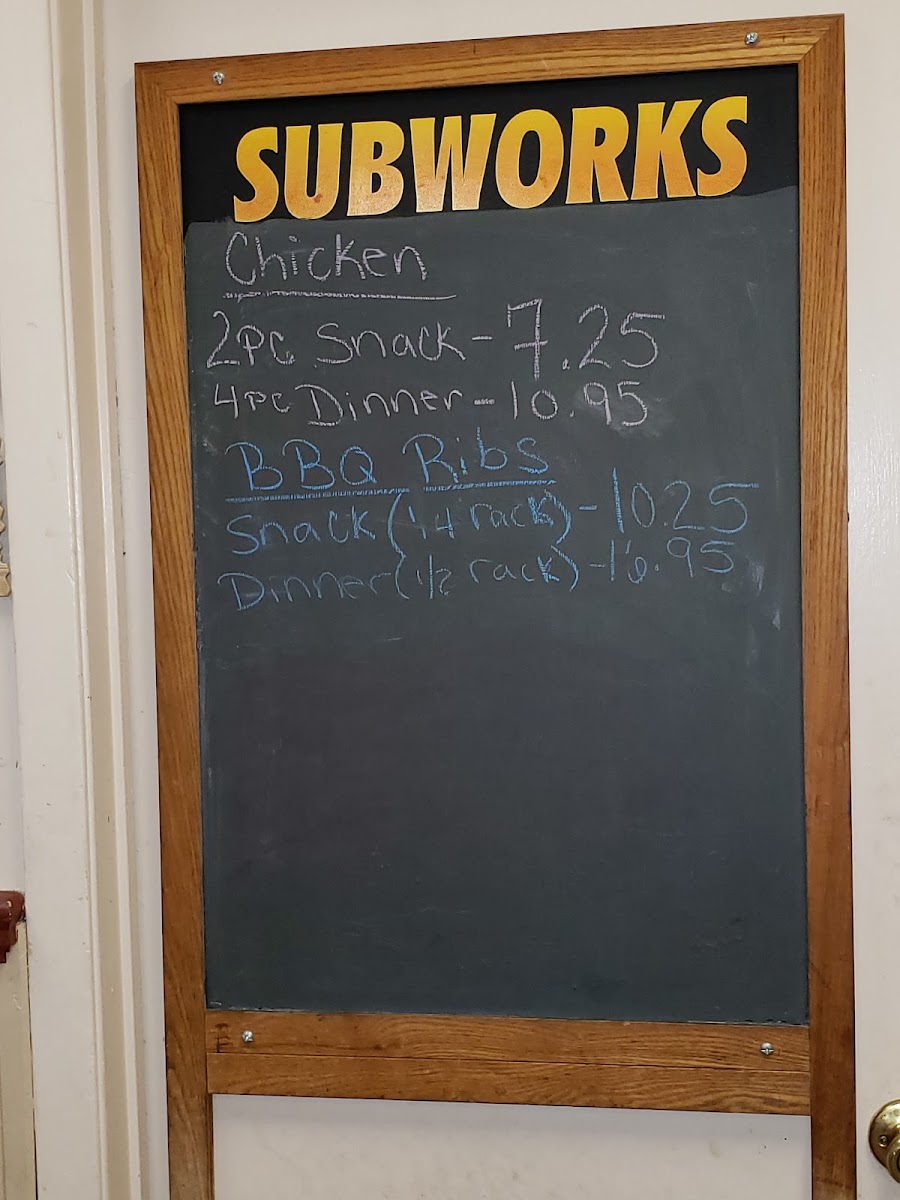 SUBWORKS
Chicken
2pc Snack - 7.25
4pc Dinner - 10.95
BBQ Ribs
Snack (1/4 rack) - 10.25
Dinner (1/2 rack) - 16.95